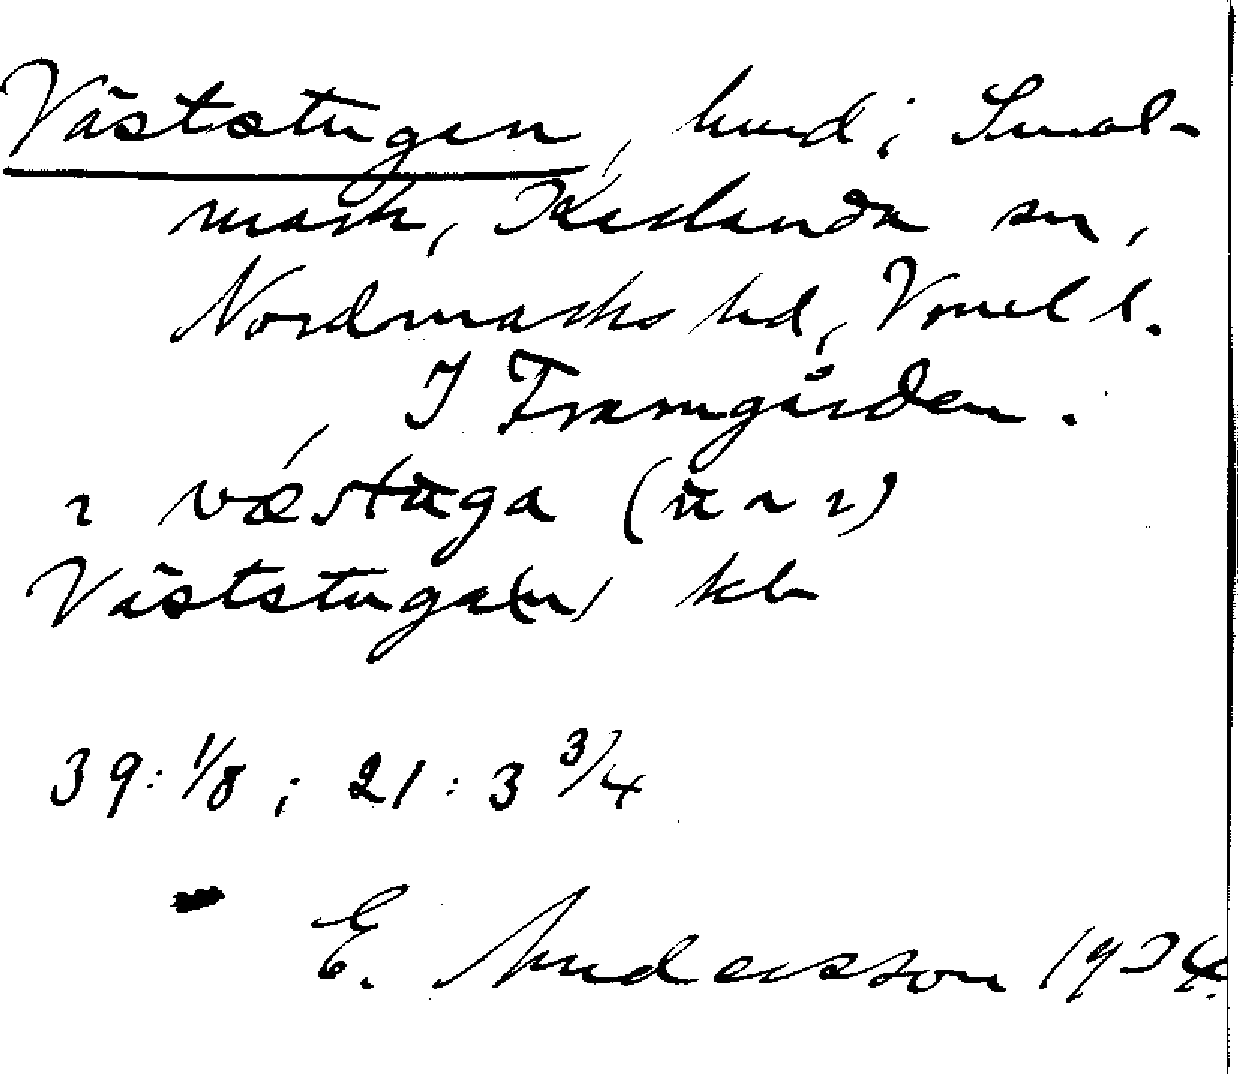 Väststugen, hmd i Smol-
mark, Karlanda sn,
Nordmarks hd, Vrml l.
I Framgården.
væstuga
Väststuga(n) kb
39: 1/8 ; 21: 3 3/4
E. Andersson 1934.